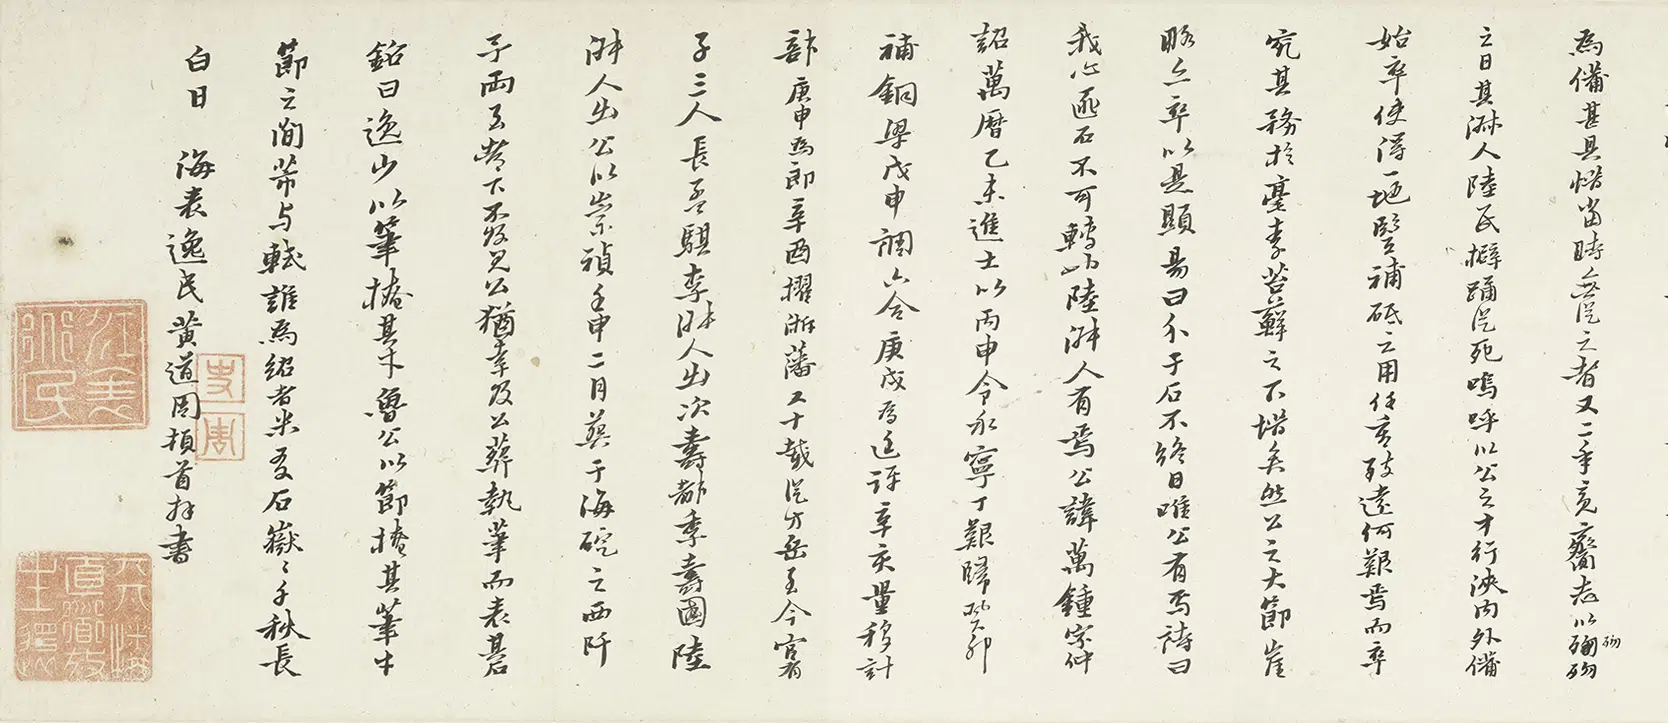 為備甚具惜當時無從之者又二年竟齎志以殉殁
之日其淋人陸氏擗踊從死嗚呼以公之才行浹內外備
始卒使得一地毉補砥之用任重致遠何艱焉而卒
究其務於臺李苔蘚之下惜矣然公之大節崖
略亡卒以是顯易曰介于石不終日唯公有焉詩曰
我心匪石不可轉此陸淋人有焉公諱萬鍾字仲
詔萬曆乙未進士以丙申令永寧丁艱歸癸卯
補銅梁戊申調六合庚戌為廷評辛亥量移計
部庚申為郎辛酉擢浙藩又十載從方岳至今官有
子三人長吾騏李淋人出次壽都季壽國陸
淋人出公以崇禎壬申二月葬于海碇之西阡
予兩至輦下不及見公猶幸及公葬執筆而表其碣
銘曰逸少以筆捲其才魯公以節捲其筆才
節之間芾與軾誰為紹者米友石嶽〻千秋長
白日 海表逸民黃道周頓首拜書